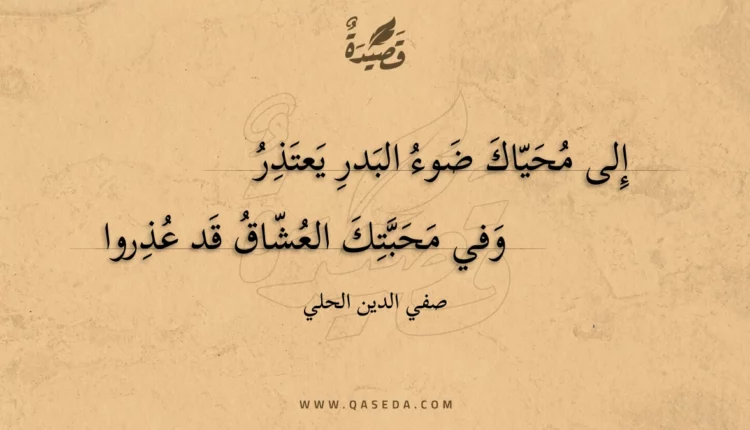 قَصِيْدَةٌ
إِلى مُحَيّاكَ ضَوءُ البَدرِ يَعتَذِرُ
وَفي مَحَبَّتِكَ العُشّاقُ قَد عُذِروا
صفي الدين الحلي
WWW.QASEDA.COM